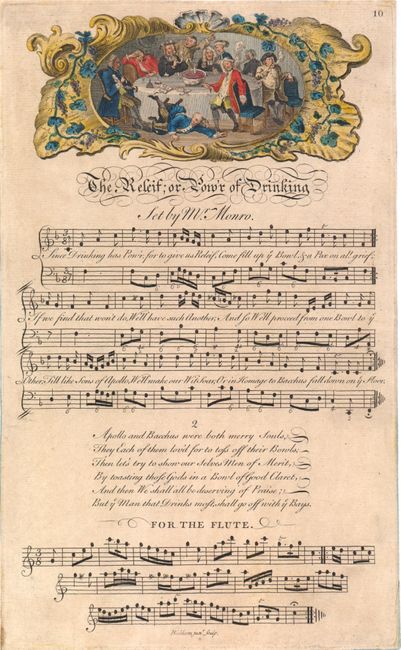 10
The Releif; or Pow'r of Drinking
Set by Mr. Monro.
Since Drinking has Pow'r for to give us Releif, Come fill up ye Bowl, & a Pox on all grief;
If we find that won't do, We'll have such Another; And so We'll proceed from one Bowl to ye
Other; Till like Sons of Apollo, We'll make our Wit Soar; Or in Homage to Bacchus fall down on ye Floor.
2
Apollo and Bacchus were both merry Souls;
They Each of them lov'd for to toss off their Bowls;
Then let's try to show our Selves Men of Merit,
By toasting those Gods in a Bowl of Good Claret;
And then We shall all be deserving of Praise;
But ye Man that Drinks most, shall go off with ye Bays.
FOR THE FLUTE.